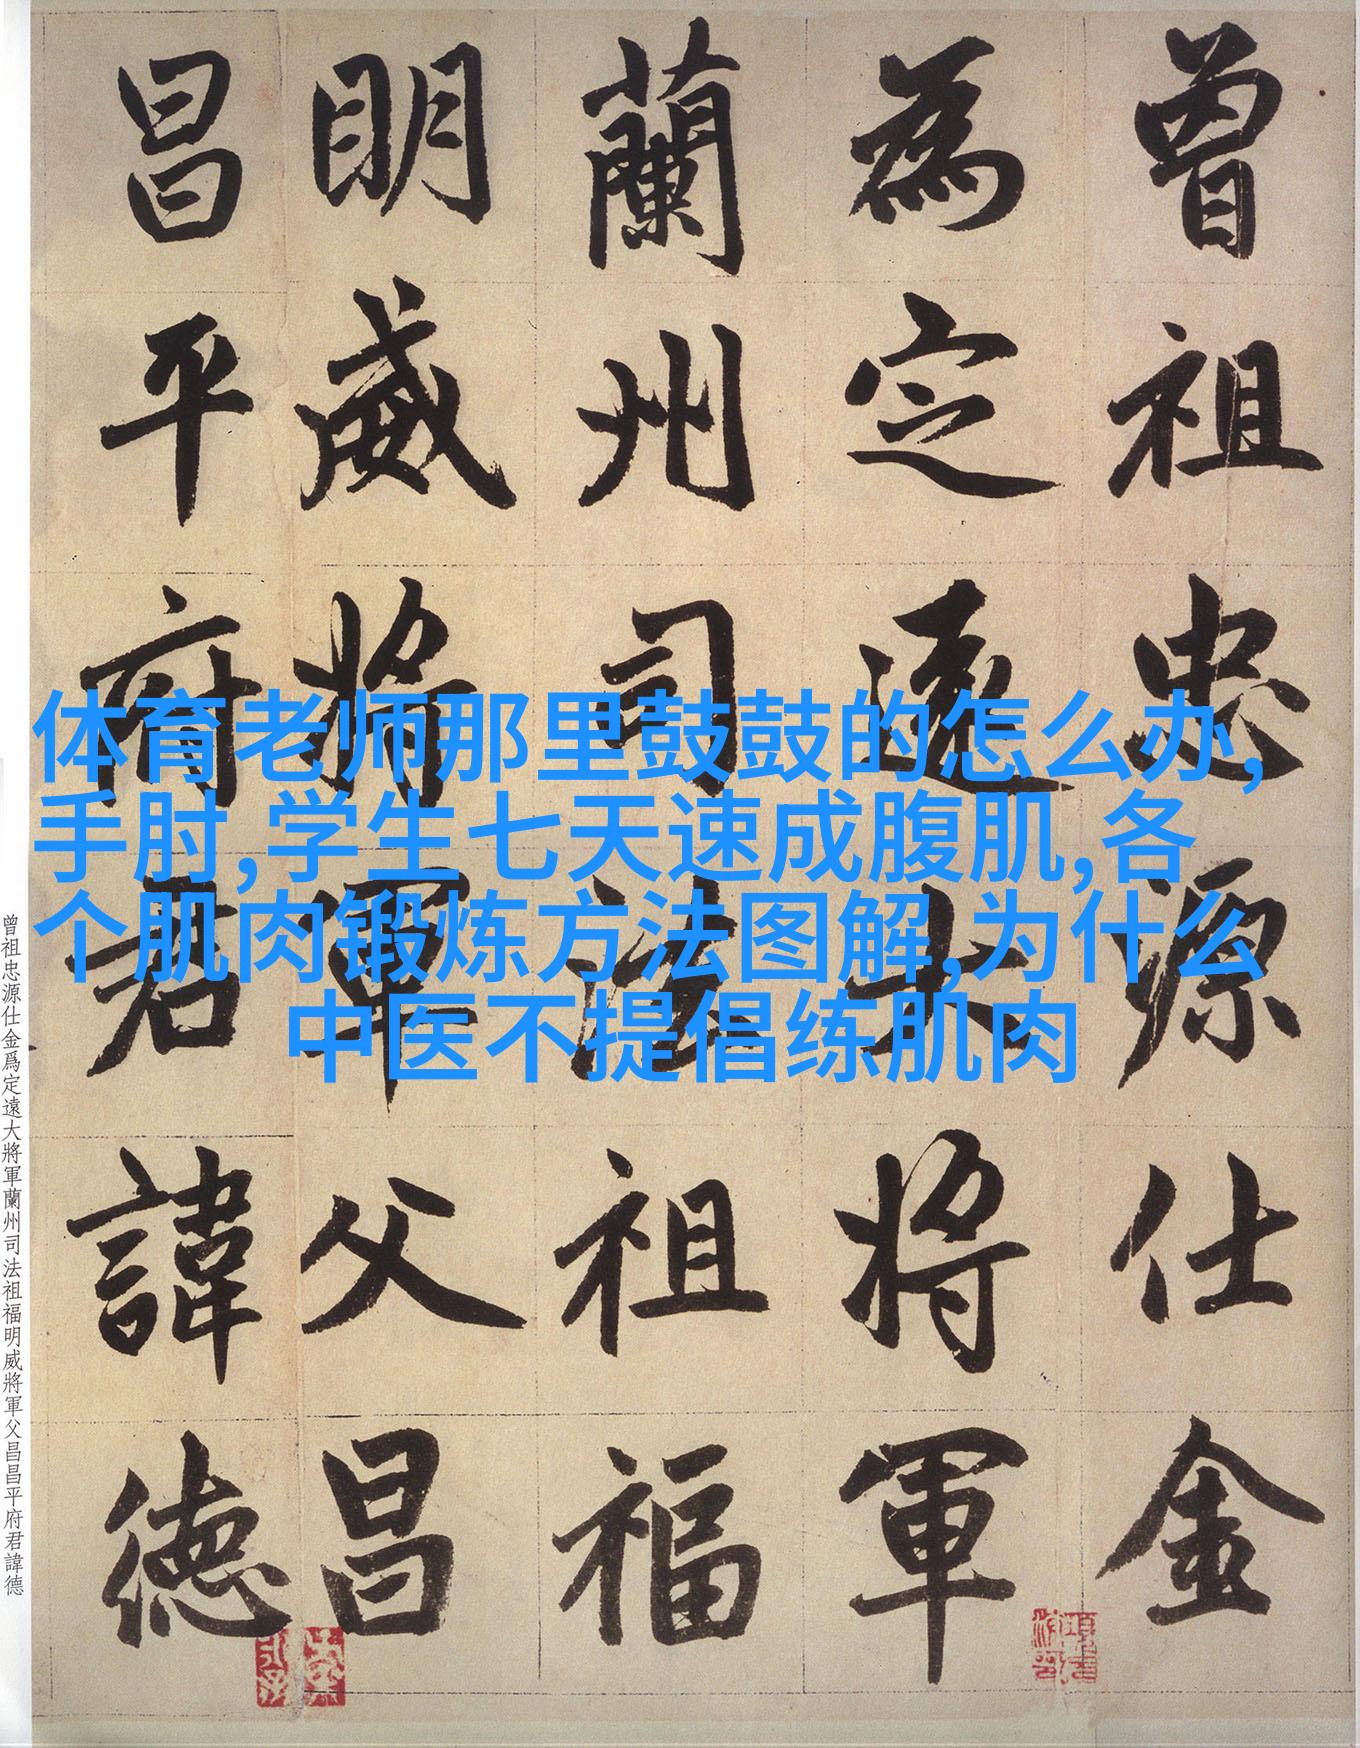 曾祖忠源仕金
為定遠大將軍
蘭州司法祖福
明威將軍父昌
昌平府君諱德
体育老师那里鼓鼓的怎么办,
手肘,学生七天速成腹肌,各
个肌肉锻炼方法图解,为什么
中医不提倡练肌肉
曾祖忠源仕金爲定遠大將軍蘭州司法祖福明威將軍父昌昌平府君諱德